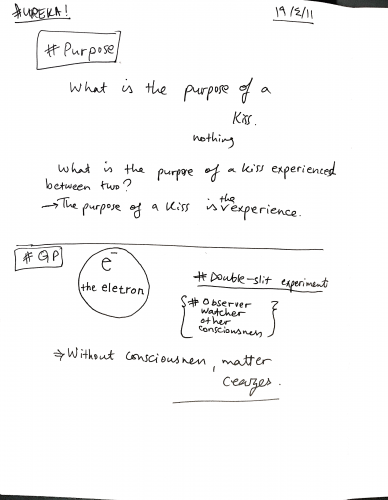 #UREKA!
19/2/11
# Purpose
What is the purpose of a
Kiss.
nothing
What is the purpose of a Kiss experienced
between two?
→ The purpose of a Kiss is the experience.
# GP
e⁻
the eletron
# Double-slit experiment
{# Observer
watcher
other
consciousness}
⇒ Without consciousness, matter
ceazes.